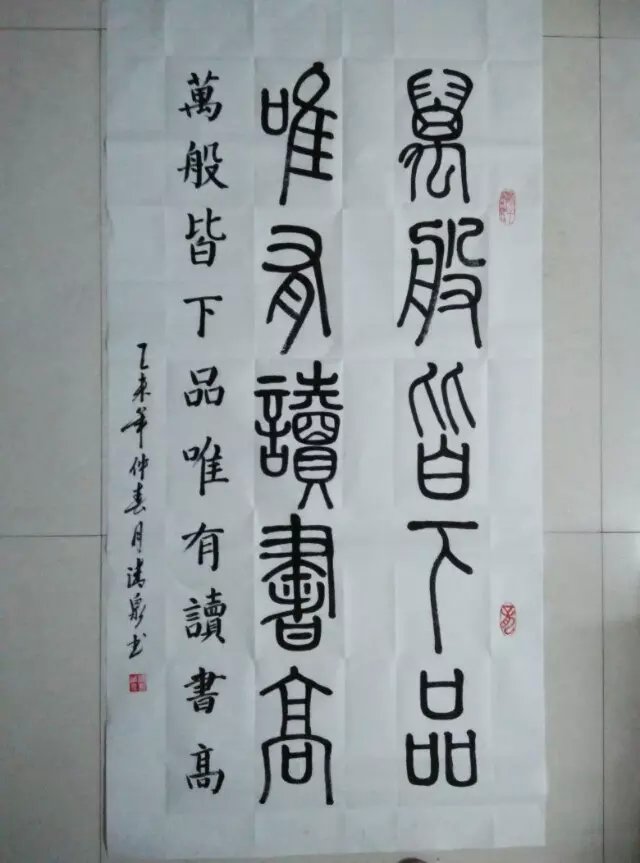 萬般皆下品
唯有讀書高
萬般皆下品唯有讀書高
乙未年仲春月清泉书